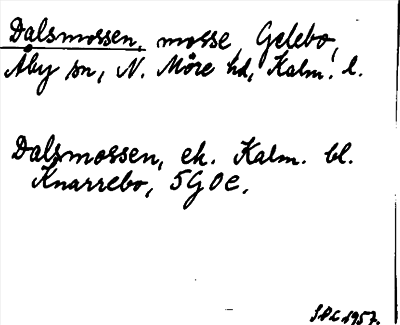 Dalsmossen, mosse, Gelebo,
Åby sn, N. Möre hd, Kalm. l.
Dalsmossen, ek. Kalm. bl.
Knarrebo, 5G0e.
1957.